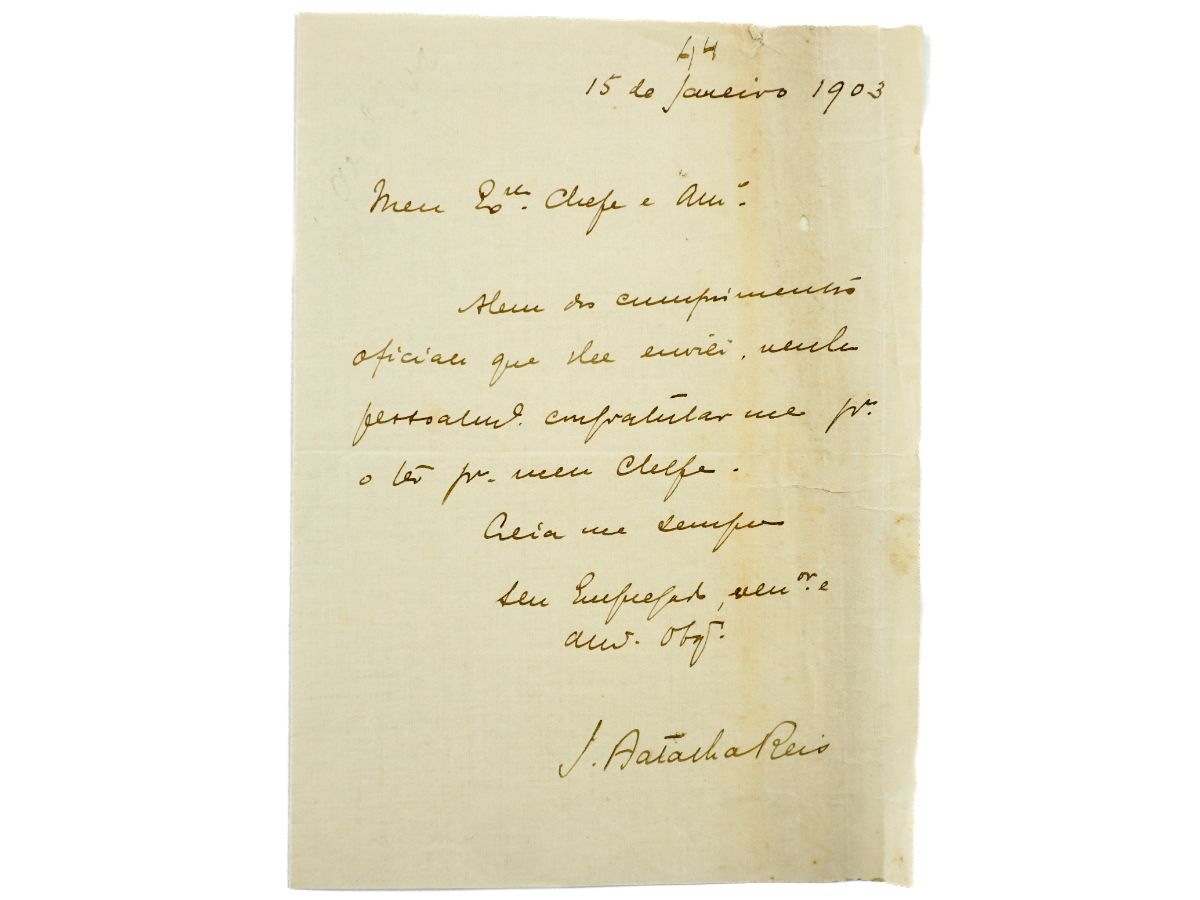 15 de Janeiro 1903
Meu Exmo. Chefe e Amº.
Alem dos cumprimentos
oficiaes que lhe enviei, venho
pessoalmte. congratular me pr.
o ter pr. meu Chefe.
Creia me sempre
seu Empregado, venor. e
amº. Obgº.
J. Batalha Reis